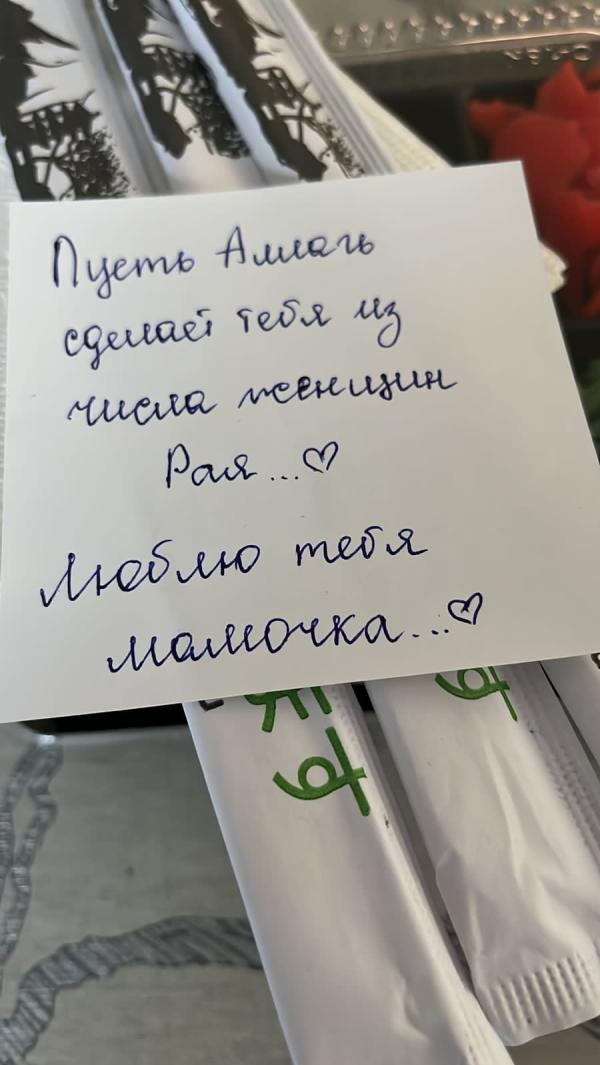 Пусть Аллагь
сделает тебя из
числа женщин
Рая...♡
Люблю тебя
мамочка...♡